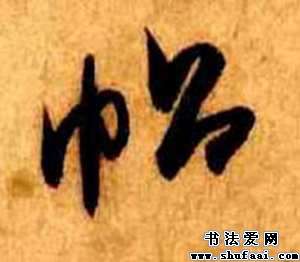 帖
书法爱网
www.shufaai.com